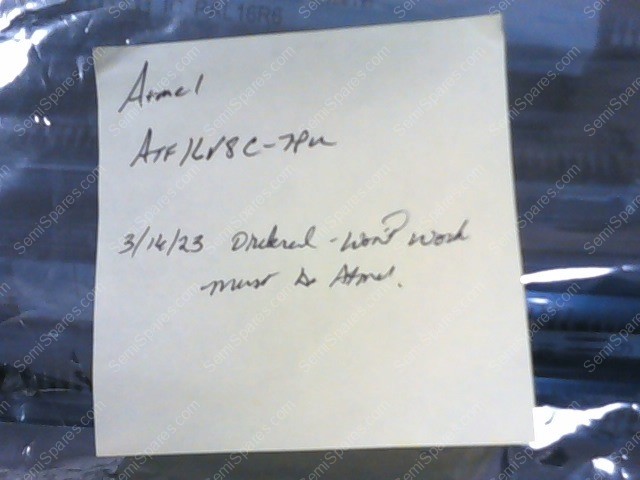 Atmel
ATF16V8C-7PU
3/16/23 Ordered - Won't work
must be Atmel.
SemiSpares.com